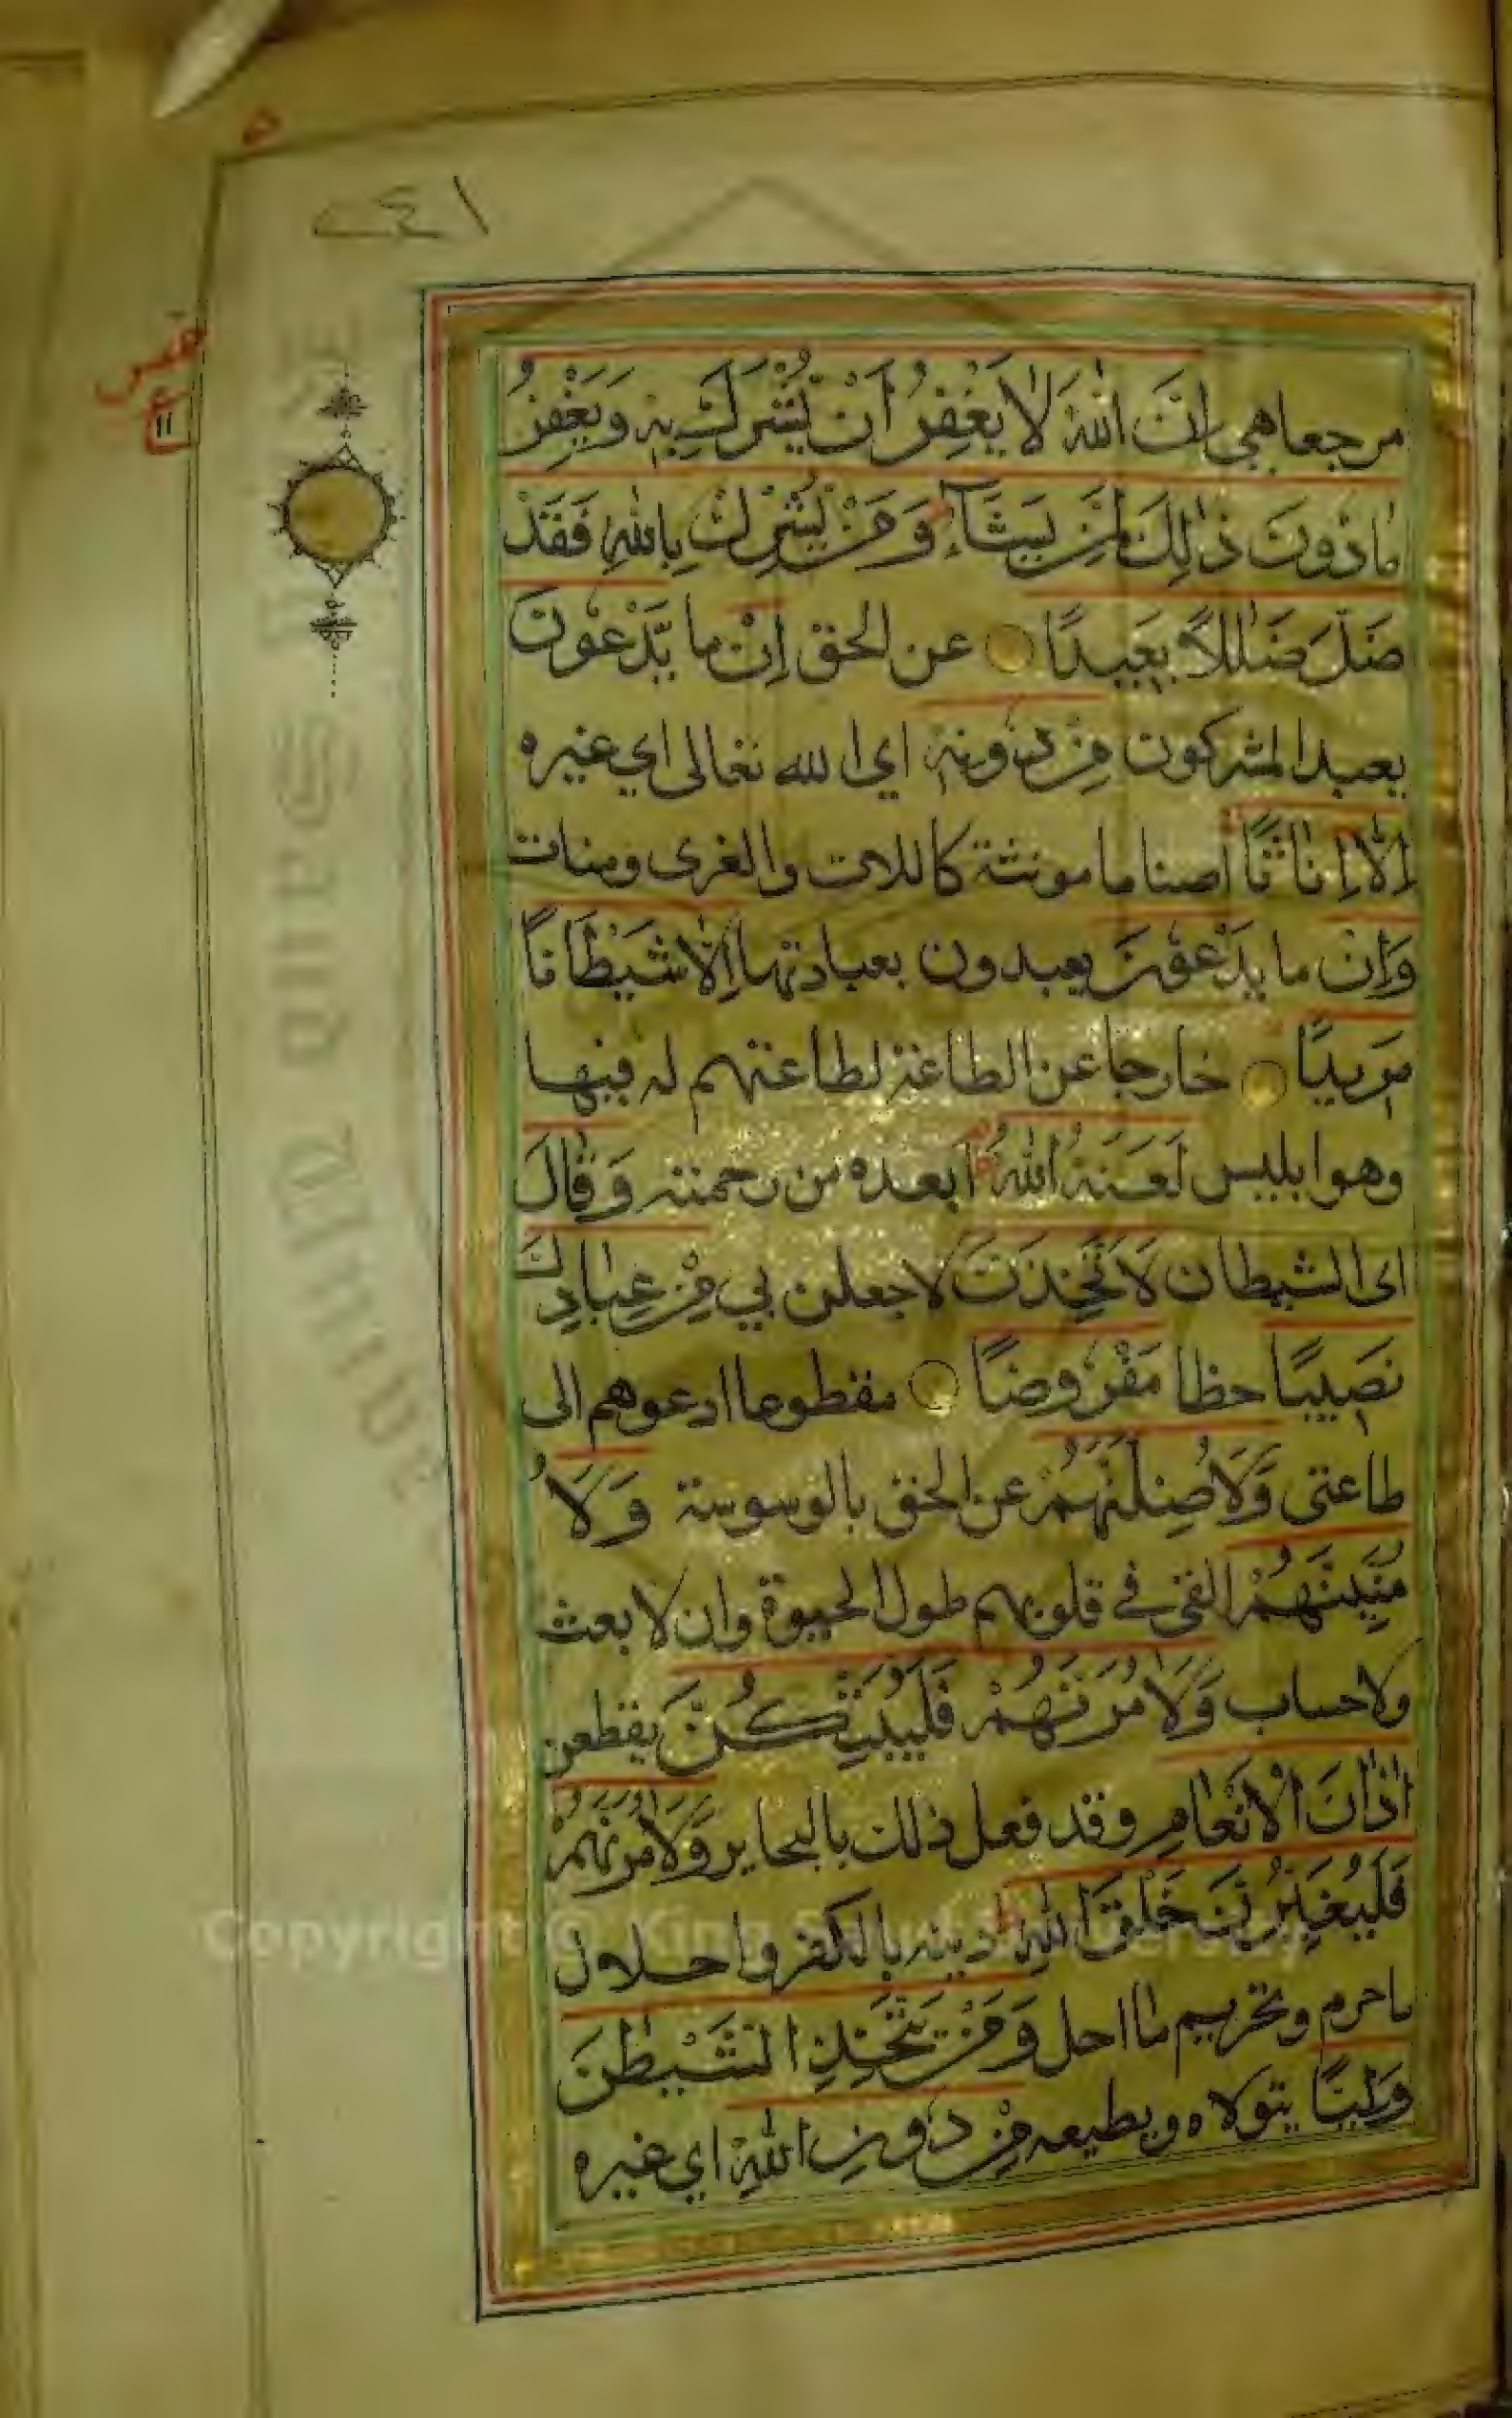 مرجعا هي اِنَّ اللّٰهَ لَا يَغْفِرُ اَنْ يُشْرَكَ بِهٖ وَيَغْفِرُ
مَا دُوْنَ ذٰلِكَ لِمَنْ يَشَآءُ وَمَنْ يُشْرِكْ بِاللّٰهِ فَقَدْ
ضَلَّ ضَلٰلًا بَعِيْدًا عن الحق اِنْ ما يَّدْعُوْنَ
يعبد المشركون مِنْ دُوْنِهٖ اي الله تعالى اي غيره
اِلَّا اِنَاثًا اصناما مونثة كاللات والغرى ومنات
وَاِنْ ما يَدْعُوْنَ يعبدون بعبادتها اِلَّا شَيْطَانًا
مَرِيْدًا خارجا عن الطاعة لطاعتهم له فيها
وهو ابليس لَعَنَهُ اللّٰهُ ابعده من رحمته وَقَالَ
اى الشيطان لَاَتَّخِذَنَّ لاجعلن لي مِنْ عِبَادِكَ
نَصِيْبًا حظا مَفْرُوْضًا مقطوعا ادعوهم الى
طاعتى وَلَاُضِلَّنَّهُمْ عن الحق بالوسوسة وَلَاُ
مَنِّيَنَّهُمْ القى في قلوبهم طول الحيوة وان لا بعث
ولا حساب وَلَاٰمُرَنَّهُمْ فَلَيُبَتِّكُنَّ يقطعن
اٰذَانَ الْاَنْعَامِ وقد فعل ذلك بالبحاير وَلَاٰمُرَنَّهُمْ
فَلَيُغَيِّرُنَّ خَلْقَ اللّٰهِ دينه بالكفر واحلال
ماحرم وتحريم ما احل وَمَنْ يَتَّخِذِ الشَّيْطٰنَ
وَلِيًّا يتولاه ويطيعه مِنْ دُوْنِ اللّٰهِ اي غيره
Copyright © King Saud University